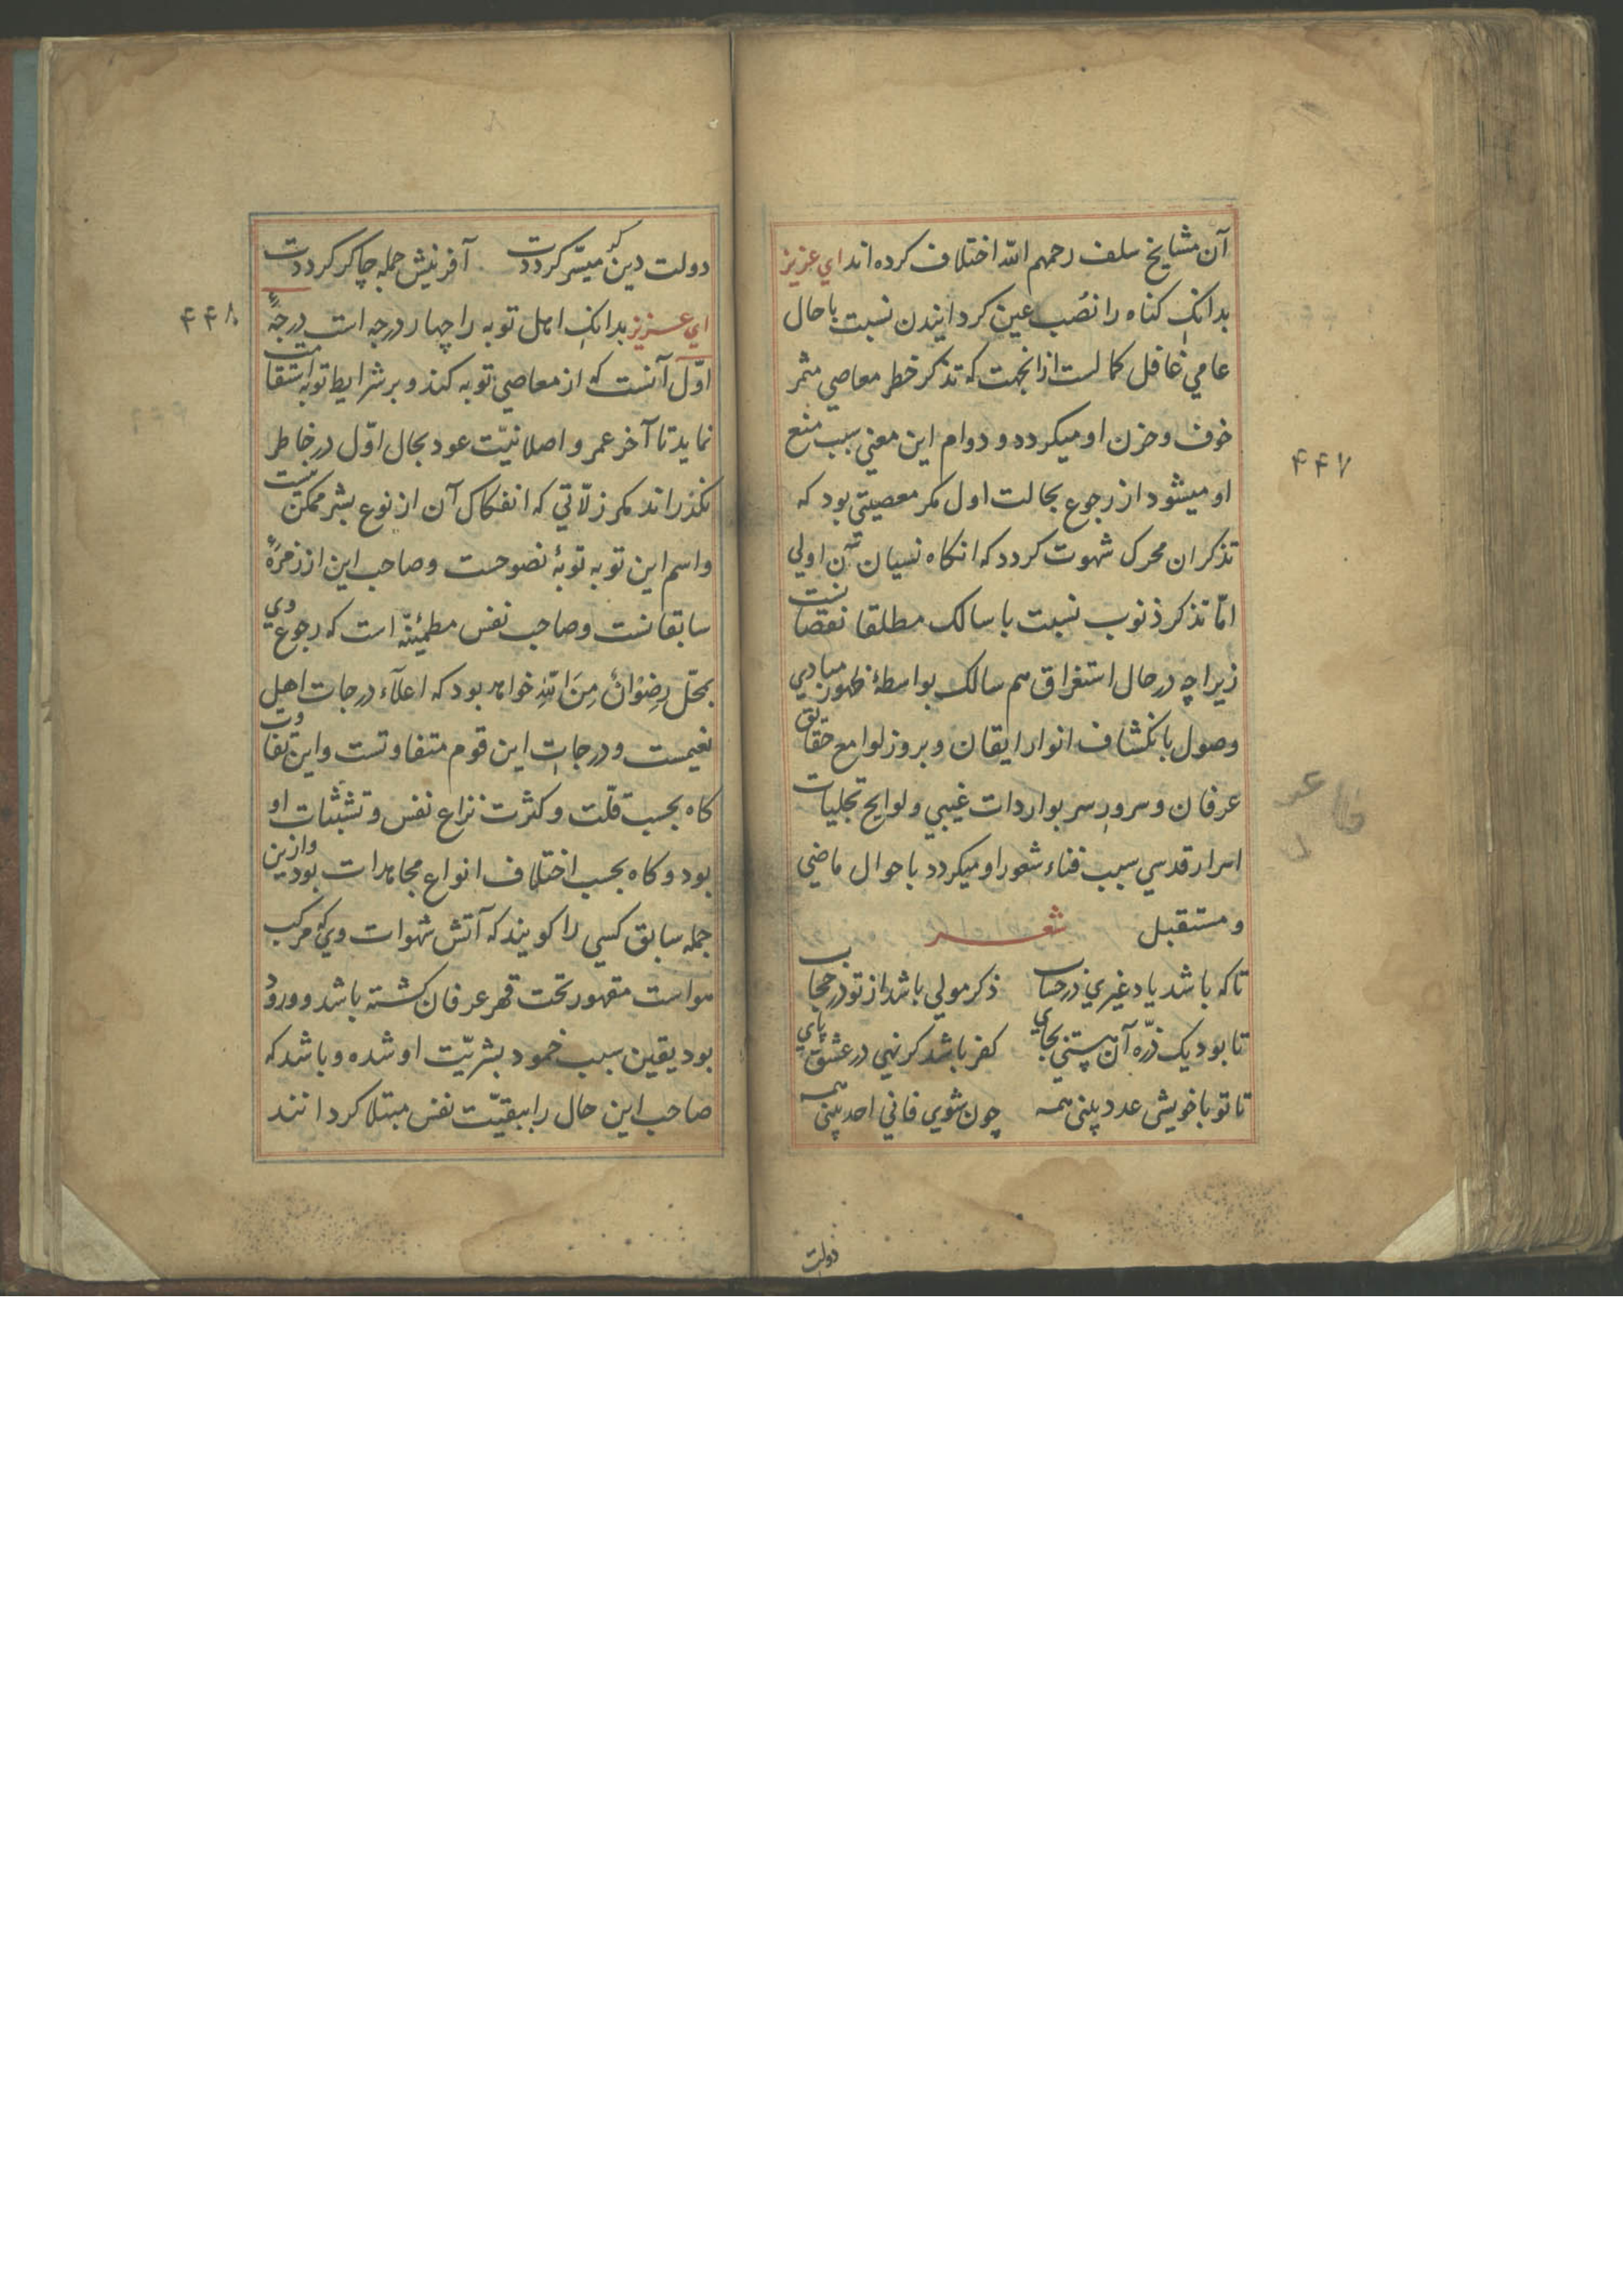 آن مشایخ سلف رحمهم الله اختلاف کرده اند اي عزیز
بدانک کناه را نصب عین کردانیدن نسبت باحال
عامي غافل کمالست ازانجهت که تذکر خطر معاصي مثمر
خوف وحزن او میکردد و دوام این معني سبب منع
۴۴۷
او میشود از رجوع بحالت اول مکر معصیتي بود که
تذکر ان محرک شهوت کردد که انکاه نسیان آن اولي
امّا تذکر ذنوب نسبت با سالک مطلقا نقصانست
زیراچه در حال استغراق هم سالک بواسطهٔ ظهور مبادي
وصول بانکشاف انوار ایقان و بروز لوامع حقایق
عرفان و سرور سر بواردات غیبي ولوایح تجلیات
اسرار قدسي سبب فناء شعور او میکردد باحوال ماضي
و مستقبل شعر
تا که باشد یاد غیري در حساب ذکر مولي باشد از تو در حجاب
تا بود یک ذرّه آن هستي بجاي کفر باشد کر نهي در عشق پاي
تا تو با خویشی عدد بینی همه چون شوي فاني احد بینی همه
دولت
دولت دین کر میسّر کرددت آفرینش جمله چاکر کرددت
۴۴۸
اي عزیز بدانک اهل توبه را چهار درجه است درجهٔ
اوّل آنست که از معاصي توبه کند و بر شرایط توبه استقامت
نماید تا آخر عمر و اصلا نیّت عود بحال اوّل در خاطر
نکذراند مکر زلّاتي که انفکاک آن از نوع بشر ممکن نیست
واسم این توبه توبهٔ نصوحست وصاحب این از زمرهٔ
سابقانست وصاحب نفس مطمئینّه است که رجوع وي
بمحّل رِضْوانٌ مِنَ اللّهِ خواهد بود که اعلاء درجات اهل
نعیمست ودرجات این قوم متفاوتست واین تفاوت
کاه بحسب قلت و کثرت نزاع نفس و تشبّثات او
بود و کاه بحسب اختلاف انواع مجاهدات بود وازین
جمله سابق کسي را کویند که آتش شهوات وي که مرکب
هواست مقهور تحت قهر عرفان کشته باشد و ورود
بود یقین سبب خمود بشریّت او شده و باشد که
صاحب این حال را ببقیّت نفس مبتلا کردانند